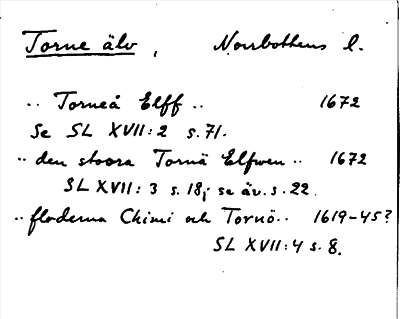 Torne älv, Norrbottens l.
.. Torneå Elff .. 1672
Se SL XVII:2 s. 71.
.. den stoora Tornä Elfwen .. 1672
SL XVII: 3 s. 18; se äv. s. 22.
.. floderna Chimi och Tornö.. 1619-45?
SL XVII:4 s. 8.